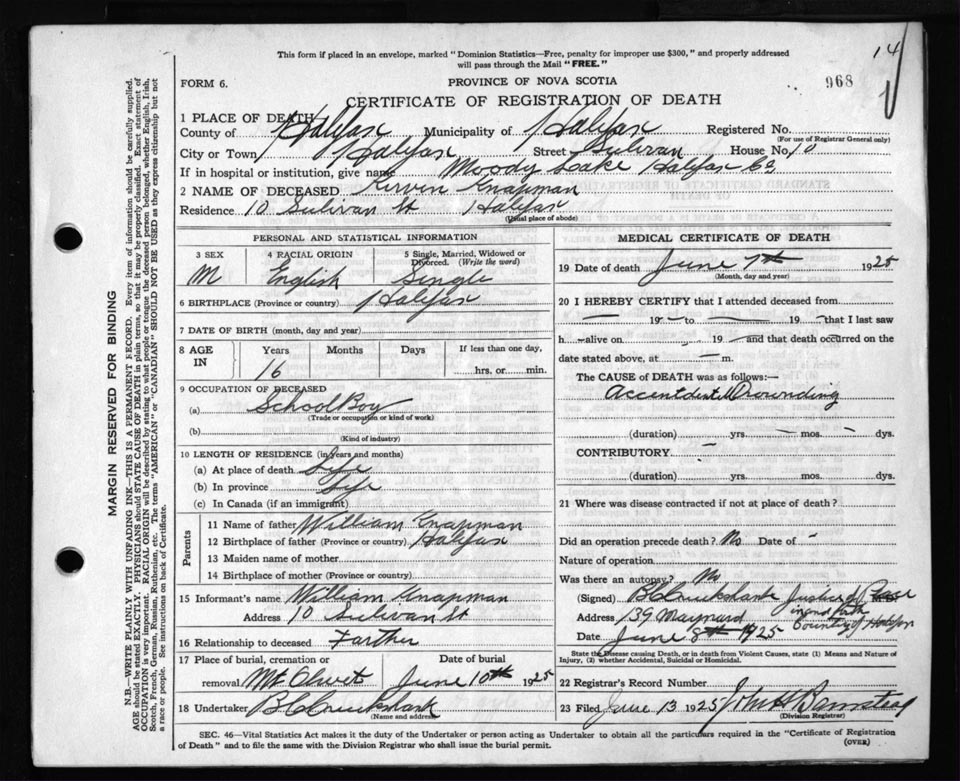 This form if placed in an envelope, marked "Dominion Statistics—Free, penalty for improper use $300," and properly addressed
will pass through the Mail "FREE."
14
FORM 6.
PROVINCE OF NOVA SCOTIA
968
CERTIFICATE OF REGISTRATION OF DEATH
1 PLACE OF DEATH
County of Halifax Municipality of Halifax Registered No.
(For use of Registrar General only)
City or Town Halifax Street Sulivan House No. 10
If in hospital or institution, give name Moody Lake Halifax Co
2 NAME OF DECEASED Kirvin Knapman
Residence 10 Sulivan St Halifax
(Usual place of abode)
PERSONAL AND STATISTICAL INFORMATION
3 SEX M
4 RACIAL ORIGIN English
5 Single, Married, Widowed or Divorced. (Write the word) Single
6 BIRTHPLACE (Province or country) Halifax
7 DATE OF BIRTH (month, day and year)
8 AGE IN Years 16 Months Days If less than one day, hrs. or min.
9 OCCUPATION OF DECEASED
(a) School Boy
(Trade or occupation or kind of work)
(b)
(Kind of industry)
10 LENGTH OF RESIDENCE (in years and months)
(a) At place of death Life
(b) In province Life
(c) In Canada (if an immigrant)
Parents
11 Name of father William Knapman
12 Birthplace of father (Province or country) Halifax
13 Maiden name of mother
14 Birthplace of mother (Province or country)
15 Informant's name William Knapman
Address 10 Sulivan St
16 Relationship to deceased Farther
17 Place of burial, cremation or removal Mt Olivet Date of burial June 10th 1925
18 Undertaker B Cruikshank
(Name and address)
MEDICAL CERTIFICATE OF DEATH
19 Date of death June 7th 1925
(Month, day and year)
20 I HEREBY CERTIFY that I attended deceased from
— 19 — to — 19 — that I last saw
h — alive on 19 — and that death occurred on the
date stated above, at — m.
The CAUSE OF DEATH was as follows:—
Accentdental Drownding
(duration) yrs. — mos. — dys.
CONTRIBUTORY. —
(duration) yrs. mos. dys.
21 Where was disease contracted if not at place of death?
Did an operation precede death? No Date of -
Nature of operation
Was there an autopsy? No
(Signed) B Cruikshank Justice of Peace M.D.
Address 139 Maynard in and for the County of Halifax
Date June 8th 1925
State the Disease causing Death, or in death from Violent Causes, state (1) Means and Nature of
Injury, (2) whether Accidental, Suicidal or Homicidal.
22 Registrar's Record Number
23 Filed June 13 1925 John H Barnstead
(Division Registrar)
SEC. 46—Vital Statistics Act makes it the duty of the Undertaker or person acting as Undertaker to obtain all the particulars required in the "Certificate of Registration
of Death" and to file the same with the Division Registrar who shall issue the burial permit.
(OVER)
MARGIN RESERVED FOR BINDING
N.B.—WRITE PLAINLY WITH UNFADING INK—THIS IS A PERMANENT RECORD. Every item of information should be carefully supplied.
AGE should be stated EXACTLY. PHYSICIANS should STATE CAUSE OF DEATH in plain terms, so that it may be properly classified. Exact statement of
OCCUPATION is very important. RACIAL ORIGIN will be described by stating to what people or tongue the deceased person belonged, whether English, Irish,
Scotch, French, German, Russian, Ruthenian, etc. The terms "AMERICAN" or "CANADIAN" SHOULD NOT BE USED as they express citizenship but not
a race or people. See instructions on back of Certificate.